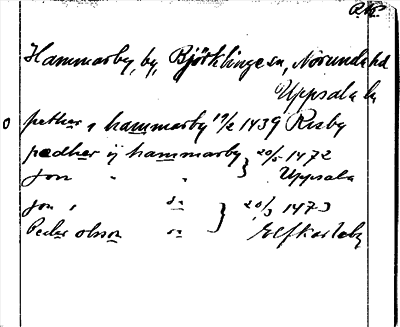 Hammarby, by, Björklinge sn, Norunda hd
Uppsala ln
o pether i hammarby 19/2 1439 Risby
pedher ij hammarby } 20/5 1472
Jon " " Uppsala
Jon i do } 20/3 1473
Peder olsson do Elfkarleby